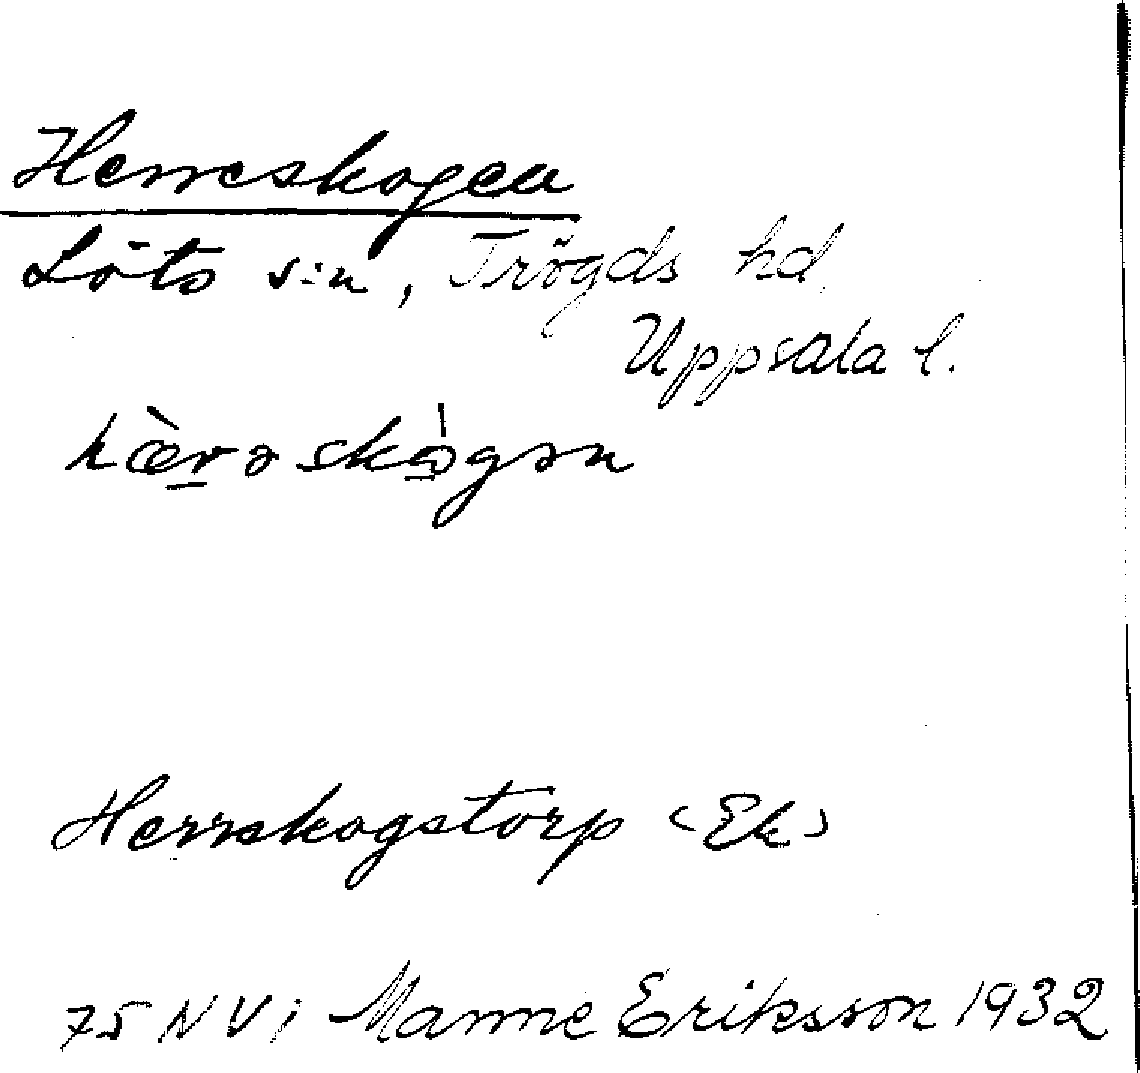 Herreskogen
Löts s:n, Trögds hd,
Uppsala l.
hæ̀rəskɷ̀gən
Herrskogstorp (Ek)
75 NV; Manne Eriksson 1932